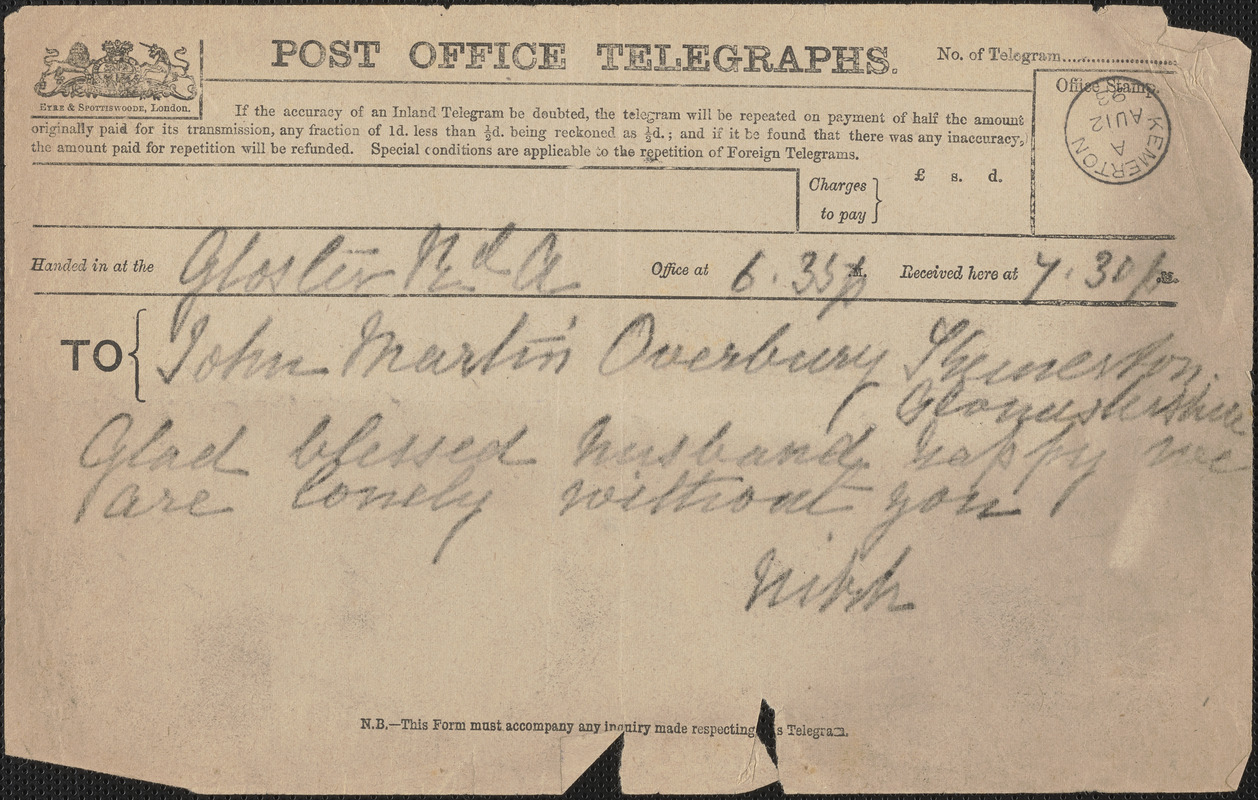 POST OFFICE TELEGRAPHS.
No. of Telegram
EYRE & SPOTTISWOODE, London.
Office Stamp.
KEMERTON
A
AU 12
93
If the accuracy of an Inland Telegram be doubted, the telegram will be repeated on payment of half the amount
originally paid for its transmission, any fraction of 1d. less than ½d. being reckoned as ½d.; and if it be found that there was any inaccuracy,
the amount paid for repetition will be refunded. Special conditions are applicable to the repetition of Foreign Telegrams.
Charges
to pay
£ s. d.
Handed in at the Gloster Rd Office at 6.35 p M. Received here at 7.30 p M.
TO John Martin Overbury Kemerton
Gloucestershire
Glad blessed husband happy we
are lonely without you
N.B.—This Form must accompany any inquiry made respecting s Telegram.